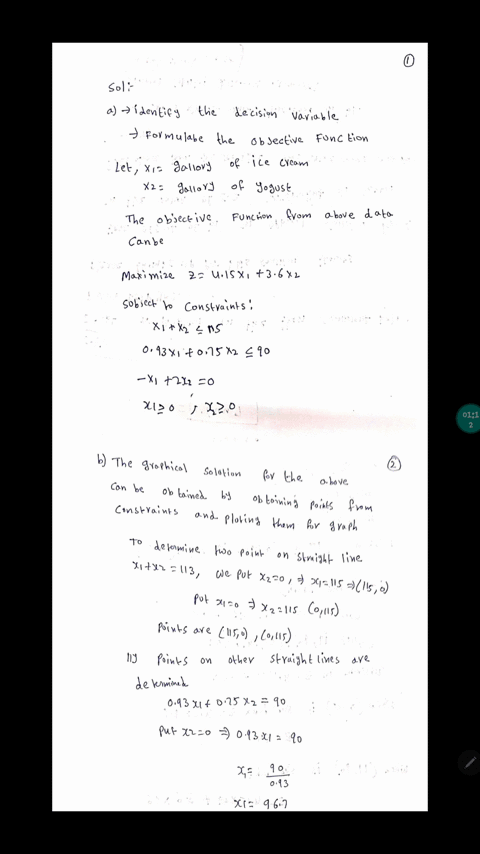 ①
Sol:-
a) → identify the decision variable
→ Formulabe the objective Function
Let, x1 = gallory of ice cream
x2 = gallory of Yogust
The objective Function from above data
Can be
Maximize Z = 4.15x1 + 3.6x2
Sobject to Constraints:
x1 + x2 ≤ 115
0.93x1 + 0.75x2 ≤ 90
-x1 + 2x2 = 0
x1 ≥ 0 ; x2 ≥ 0
01:1
2
b) The graphical Solution for the above
②
Can be obtained by obtaining points from
Constraints and ploting them for graph
To determine two point on straight line
x1 + x2 = 113, We put x2 = 0, ⇒ x1 = 115 ⇒ (115, 0)
Put x1 = 0 ⇒ x2 = 115 (0, 115)
Points are (115, 0), (0, 115)
lly Points on other straight lines are
determined
0.93x1 + 0.75x2 = 90
Put x2 = 0 ⇒ 0.93x1 = 90
x1 = 90/0.93
x1 = 96.7